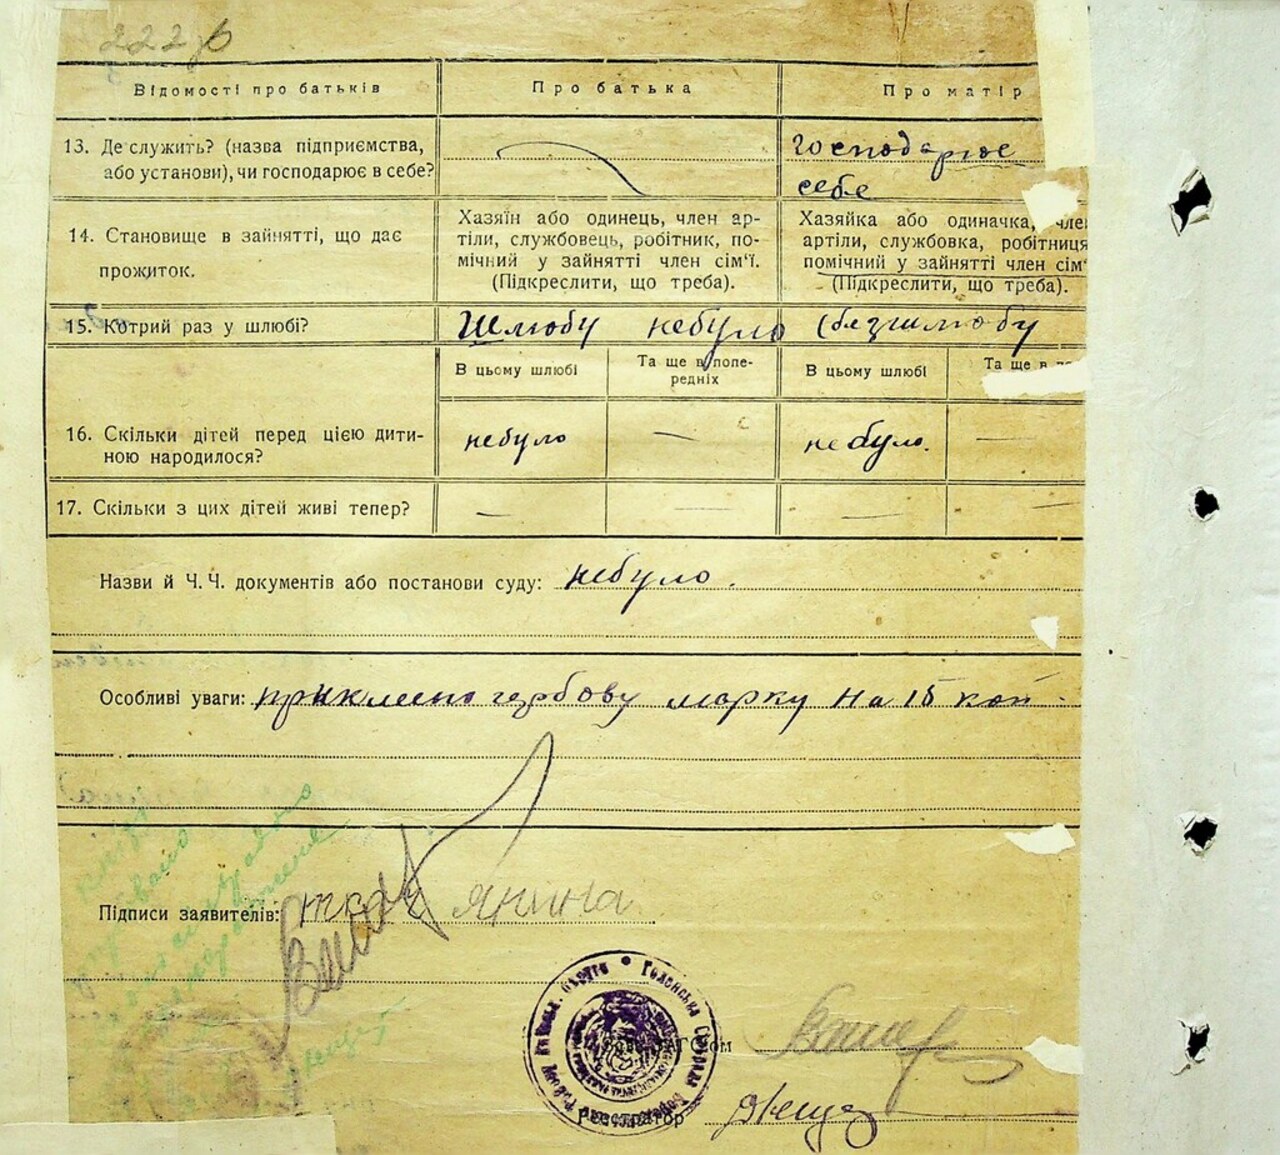 222
Відомості про батьків
Про батька
Про матір
13. Де служить? (назва підприємства,
або установи), чи господарює в себе?
Господарює
себе
14. Становище в зайнятті, що дає
прожиток.
Хазяїн або одинець, член ар-
тіли, службовець, робітник, по-
мічний у зайнятті член сім'ї.
(Підкреслити, що треба).
Хазяйка або одиначка, член
артіли, службовка, робітниця
помічний у зайнятті член сім'
(Підкреслити, що треба).
15. Котрий раз у шлюбі?
Шлюбу небуло (безшлюбу
В цьому шлюбі
Та ще в попе-
редніх
В цьому шлюбі
Та ще в
16. Скільки дітей перед цією дити-
ною народилося?
небуло
—
небуло.
—
17. Скільки з цих дітей живі тепер?
—
—
—
—
Назви й Ч. Ч. документів або постанови суду: небуло.
Особливі уваги: приклеено гербову марку на 15 коп.
Підписи заявителів: Янина
Реєстратор